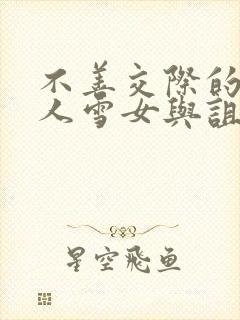 不善交際的
人雪女與詛
星空飛鱼